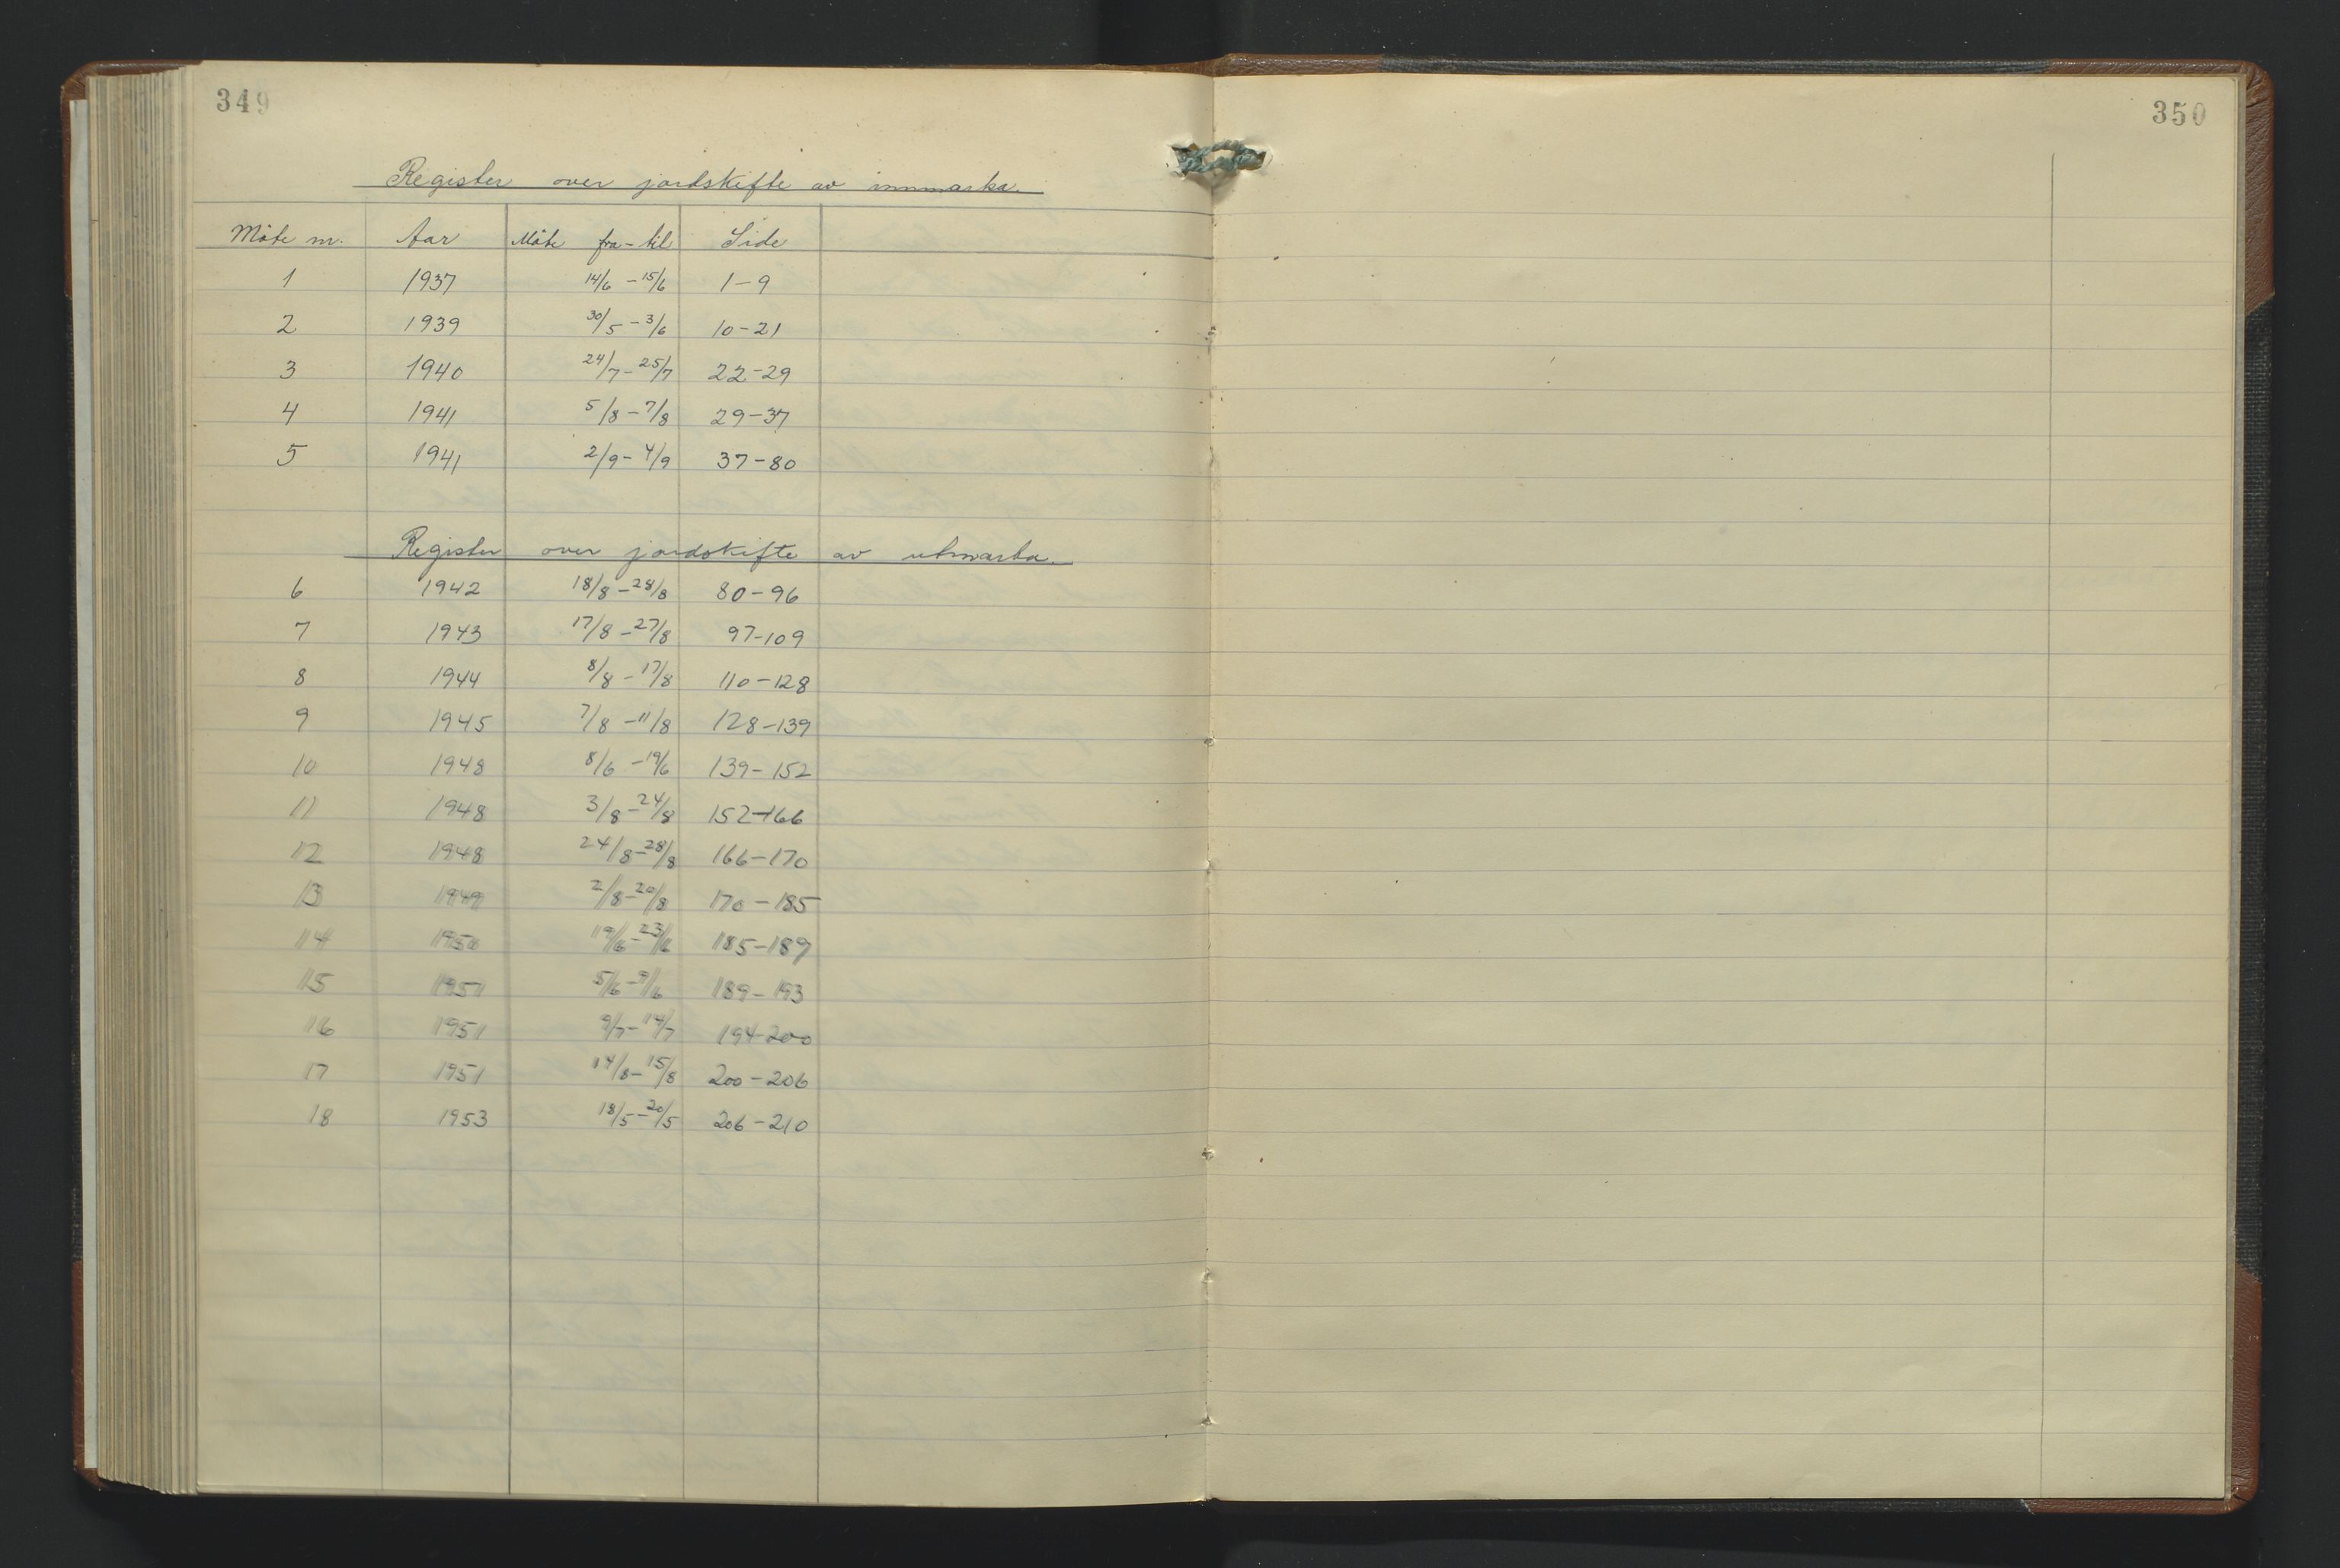 349
350
Register over jordskifte av innmarka.
Møte nr. Aar Møte fra - til Side
1 1937 14/6 - 15/6 1 - 9
2 1939 30/5 - 3/6 10 - 21
3 1940 24/7 - 25/7 22 - 29
4 1941 5/8 - 7/8 29 - 37
5 1941 2/9 - 4/9 37 - 80
Register over jordskifte av utmarka.
6 1942 18/8 - 28/8 80 - 96
7 1943 17/8 - 27/8 97 - 109
8 1944 8/8 - 17/8 110 - 128
9 1945 7/8 - 11/8 128 - 139
10 1948 8/6 - 19/6 139 - 152
11 1948 3/8 - 24/8 152 - 166
12 1948 24/8 - 28/8 166 - 170
13 1949 2/8 - 20/8 170 - 185
14 1950 19/6 - 23/6 185 - 189
15 1951 5/6 - 9/6 189 - 193
16 1951 9/7 - 14/7 194 - 200
17 1951 14/8 - 15/8 200 - 206
18 1953 18/5 - 20/5 206 - 210